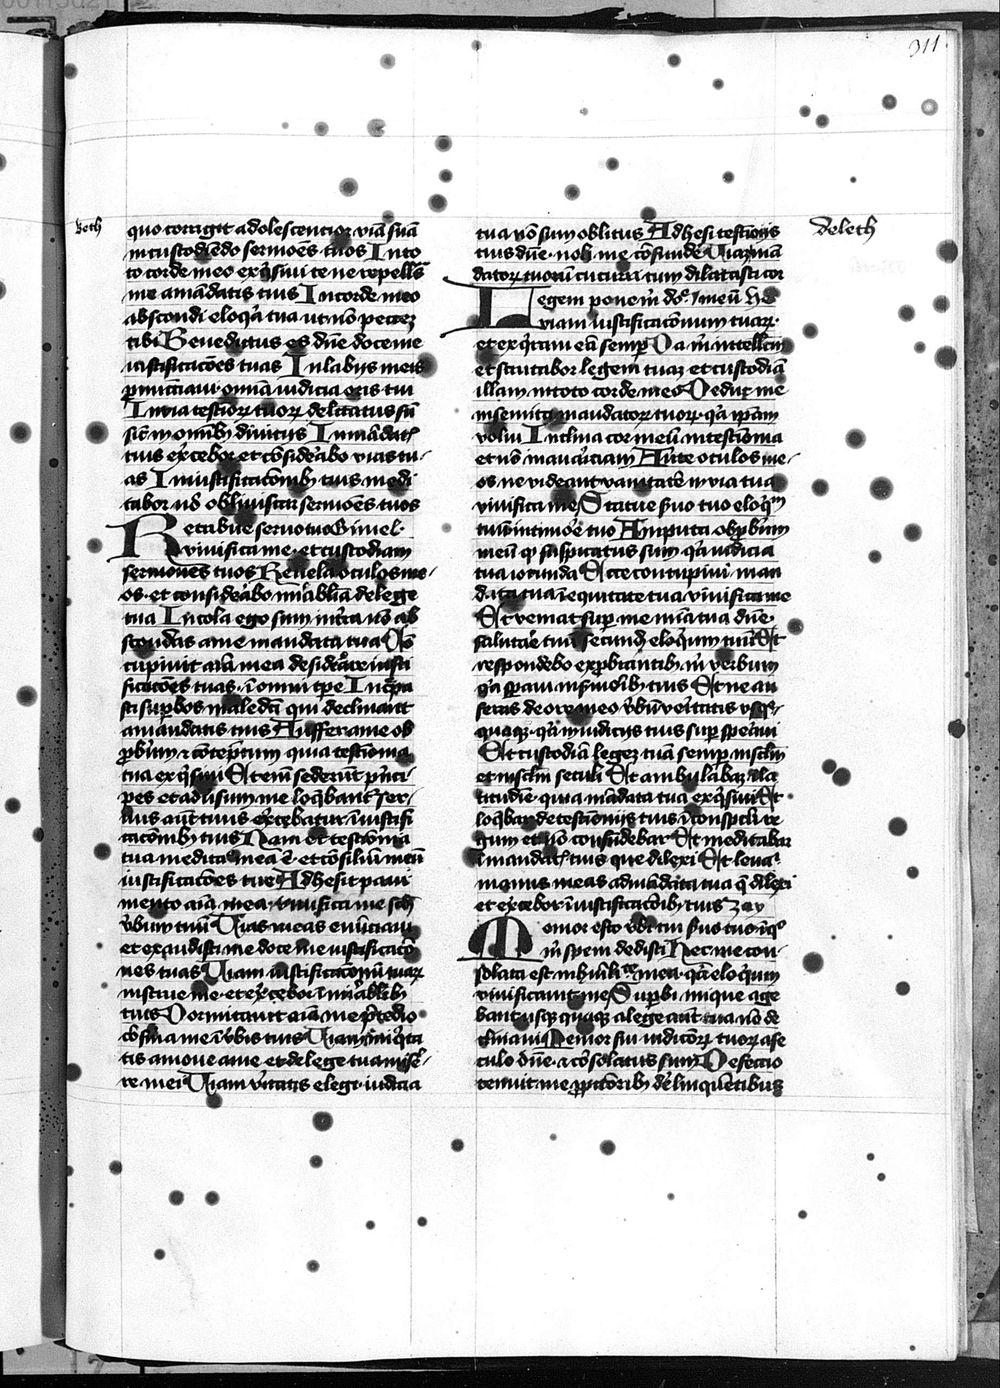 311
beth
quo corrigit adolescentior viā suā
in custodiēdo sermoēs tuos In to
to corde meo exq̄sivi te ne repellas
me a mādatis tuis In corde meo
abscondi eloq̄a tua ut nō peccez
tibi Benedictus es dn̄e doce me
iustificacōes tuas In labijs meis
ꝓnūctiavi omīa iudicia oris tui
In via testīoꝝ tuoꝝ delectatus sū
sic̄ in omībꝫ diviciis In mādat̄
tuis exercebor et cōsid̄abo vias tu-
as In iustificacōnibꝫ tuis medi
tabor nō obliviscar sermoēs tuos
Retribue servo tuo Gimel
vivifica me et custodiam
sermones tuos Revela oculos me-
os et considerabo mirabilia de lege
tua Incola ego sum in t̄ra nō ab
scondas a me mandata tua Cō
cupivit aīa mea desid̄are iusti
ficacōes tuas ī omni tꝑe Increpa
sti suꝑbos maledicti qui declinant
a mandatis tuis Auffer a me ob
ꝓbriū et cōtēptum quia testionia
tua exq̄sivi Et enī sederūt prīci-
pes et adversum me loq̄bant̄ ser-
vus aūt tuus exercebatur ī iustifi
cacōnibꝫ tuis Nam et testionia
tua meditacō mea ē et cōsiliū meū
iustificacōes tue Adhesit pavi
mento aīa mea vivifica me scd̄
v̄bum tuū Vias meas enūctiavi
et exaudisti me doce me iustificacō
nes tuas Viam iustificacōnū tuaꝝ
instrue me et exercebor ī mirabilibꝫ
tuis Dormitavit aīa mea p̄ tedio
cōfirma me ī v̄bis tuis Viam iniq̄ta
tis amove a me et de lege tua mise-
re mei Viam v̄itatis elegi iudicia
tua nō sum oblitus Adhesi testioniis
tuis dn̄e noli me cōfundē Viam mā
datoꝝ tuoꝝ cucurri cum dilatasti cor
deleth
Legem pone m̄ dn̄e meū he
viam iustificacōnum tuaꝝ
et exq̄ram eā semꝑ Da m̄ intellectū
et scrutabor legem tuaz et custodiā
illam in toto corde meo Deduc me
in semita mandatoꝝ tuoꝝ q̄a ip̄am
volui Inclina cor meū in testionia
et nō in avariciam Averte oculos me-
os ne videant vanitatē in via tua
vivifica me Statue s̄vo tuo eloq̄m
tuū in timore tuo Amputa obꝓbriū
meū qd̄ suspicatus sum q̄a iudicia
tua iocunda Ecce concupivi man
data tua ī equitate tua vivifica me
Et veniat suꝑ me mīa tua dn̄e
salutare tuū secundū eloq̄um tuū Et
respondebo exprobrantibꝫ m̄ verbum
q̄a speravi in sermōibꝫ tuis Et ne au
feras de ore meo v̄bū veritatis usqꝫ
quaqꝫ q̄a in iudiciis tuis suꝑ speravi
Et custodiā legez tuā semꝑ in sclm̄
et in sclm̄ seculi Et ambulabaz in la
titudīe quia mādata tua exq̄sivi Et
loq̄bar de testioniis tuis ī conspectu re
gum et nō confūdebar Et meditabar
ī mandatis tuis que dilexi Et leva
manus meas ad mādata tua q̄ dilexi
et exercebor ī iustificacōibꝫ tuis Zay
Memor esto v̄bi tui s̄vo tuo ī q̄
m̄ spem dedisti Hec me con-
solata est in humilitate mea q̄a eloq̄um
vivificavit me Suꝑbi inique age
bant usqꝫ quaqꝫ a lege aūt tua nō de
clinavi Memor fui iudicioꝝ tuoꝝ a se
culo dn̄e et cōsolatus sum Defectio
tenuit me ꝓ pctōribꝫ derelinquētibus